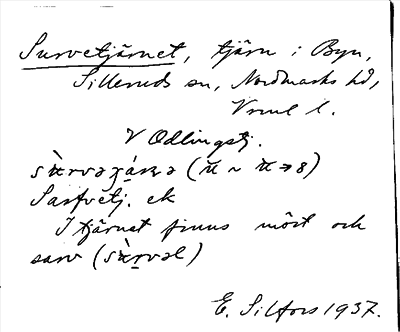 Survetjärnet, tjärn i Byn,
Sillerud sn, Nordmarks hd,
Vrml l.
V Odlingstj.
Sarfvetj. ek
I tjärnet finns mört och
sarv
E. Silfors 1937.